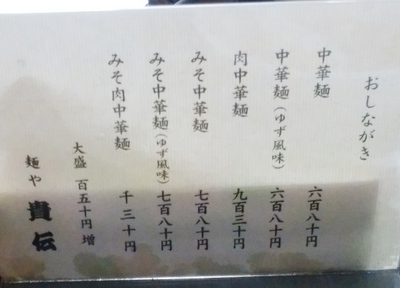 おしながき
中華麺 六百八十円
中華麺(ゆず風味) 六百八十円
肉中華麺 九百三十円
みそ中華麺 七百八十円
みそ中華麺(ゆず風味) 七百八十円
みそ肉中華麺 千三十円
大盛 百五十円 増
麺や 貴伝